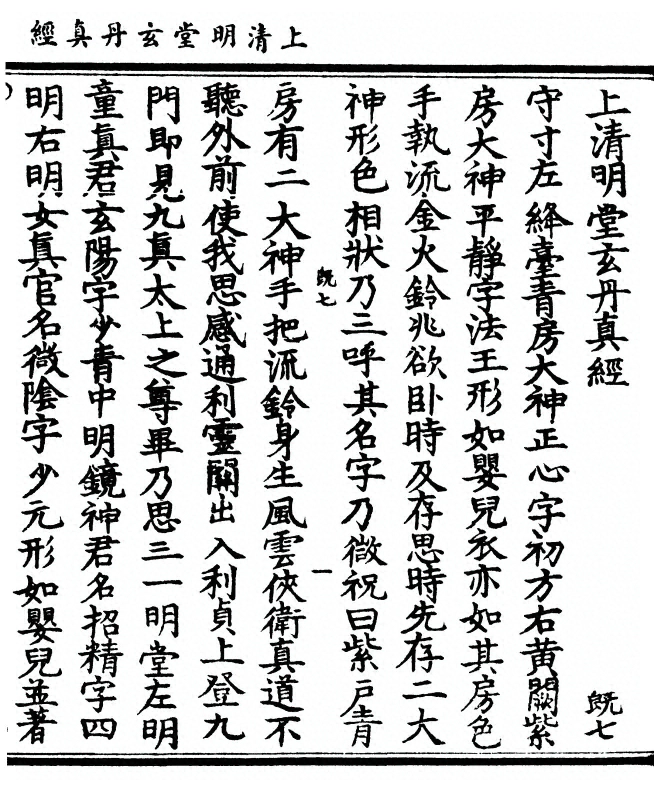 上清明堂玄丹真經
上清明堂玄丹真經 既七
守寸左絳臺青房大神正心字初方右黄闕紫
房大神平静字法王形如嬰兒衣亦如其房色
手執流金火鈴兆欲卧時及存思時先存二大
神形色相狀乃三呼其名字乃微祝曰紫戶青
既七 一
房有二大神手把流鈴身生風雲俠衛真道不
聽外前使我思感通利靈關出入利貞上登九
門即見九真太上之尊畢乃思三一明堂左明
童真君玄陽字少青中明鏡神君名招精字四
明右明女真官名微陰字少元形如嬰兒並著